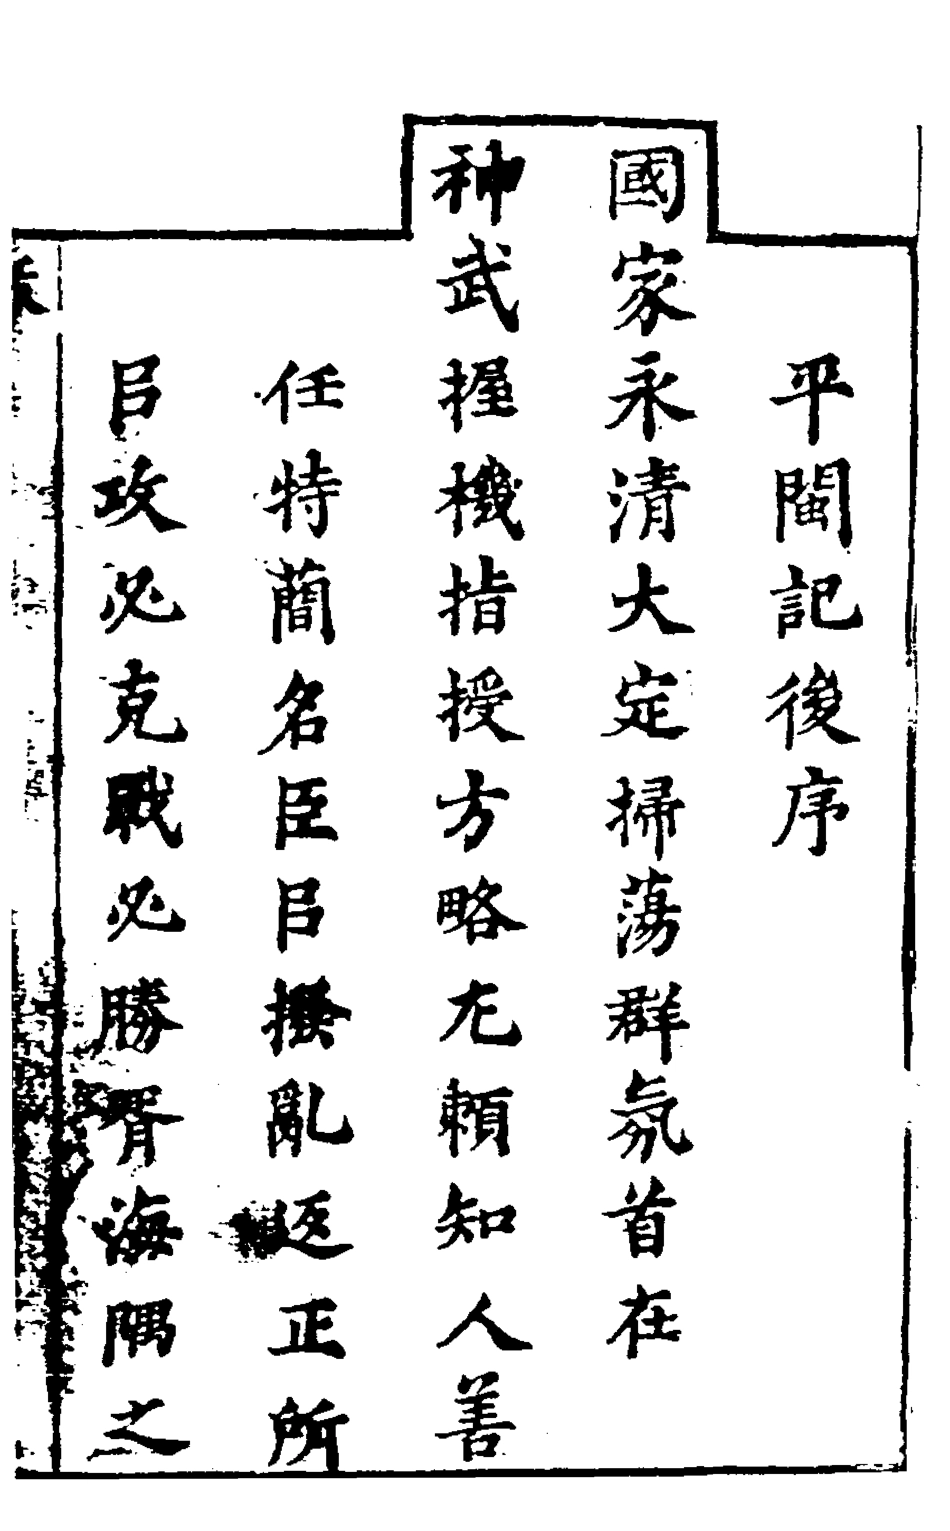 平閩記後序
國家永清大定掃蕩群氛首在
神武握機指授方略尢頼知人善
任特蕳名臣㠯撥亂返正所
㠯攻必克戰必勝胥海隅之